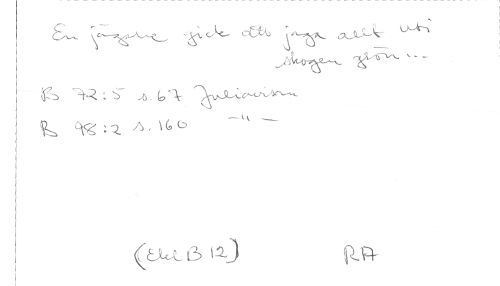 En jägare gick att jaga allt uti
skogen grön...
B 72:5 s.67 Juliavisan
B 98:2 s.160 -"-
(Ekl B 12) RA